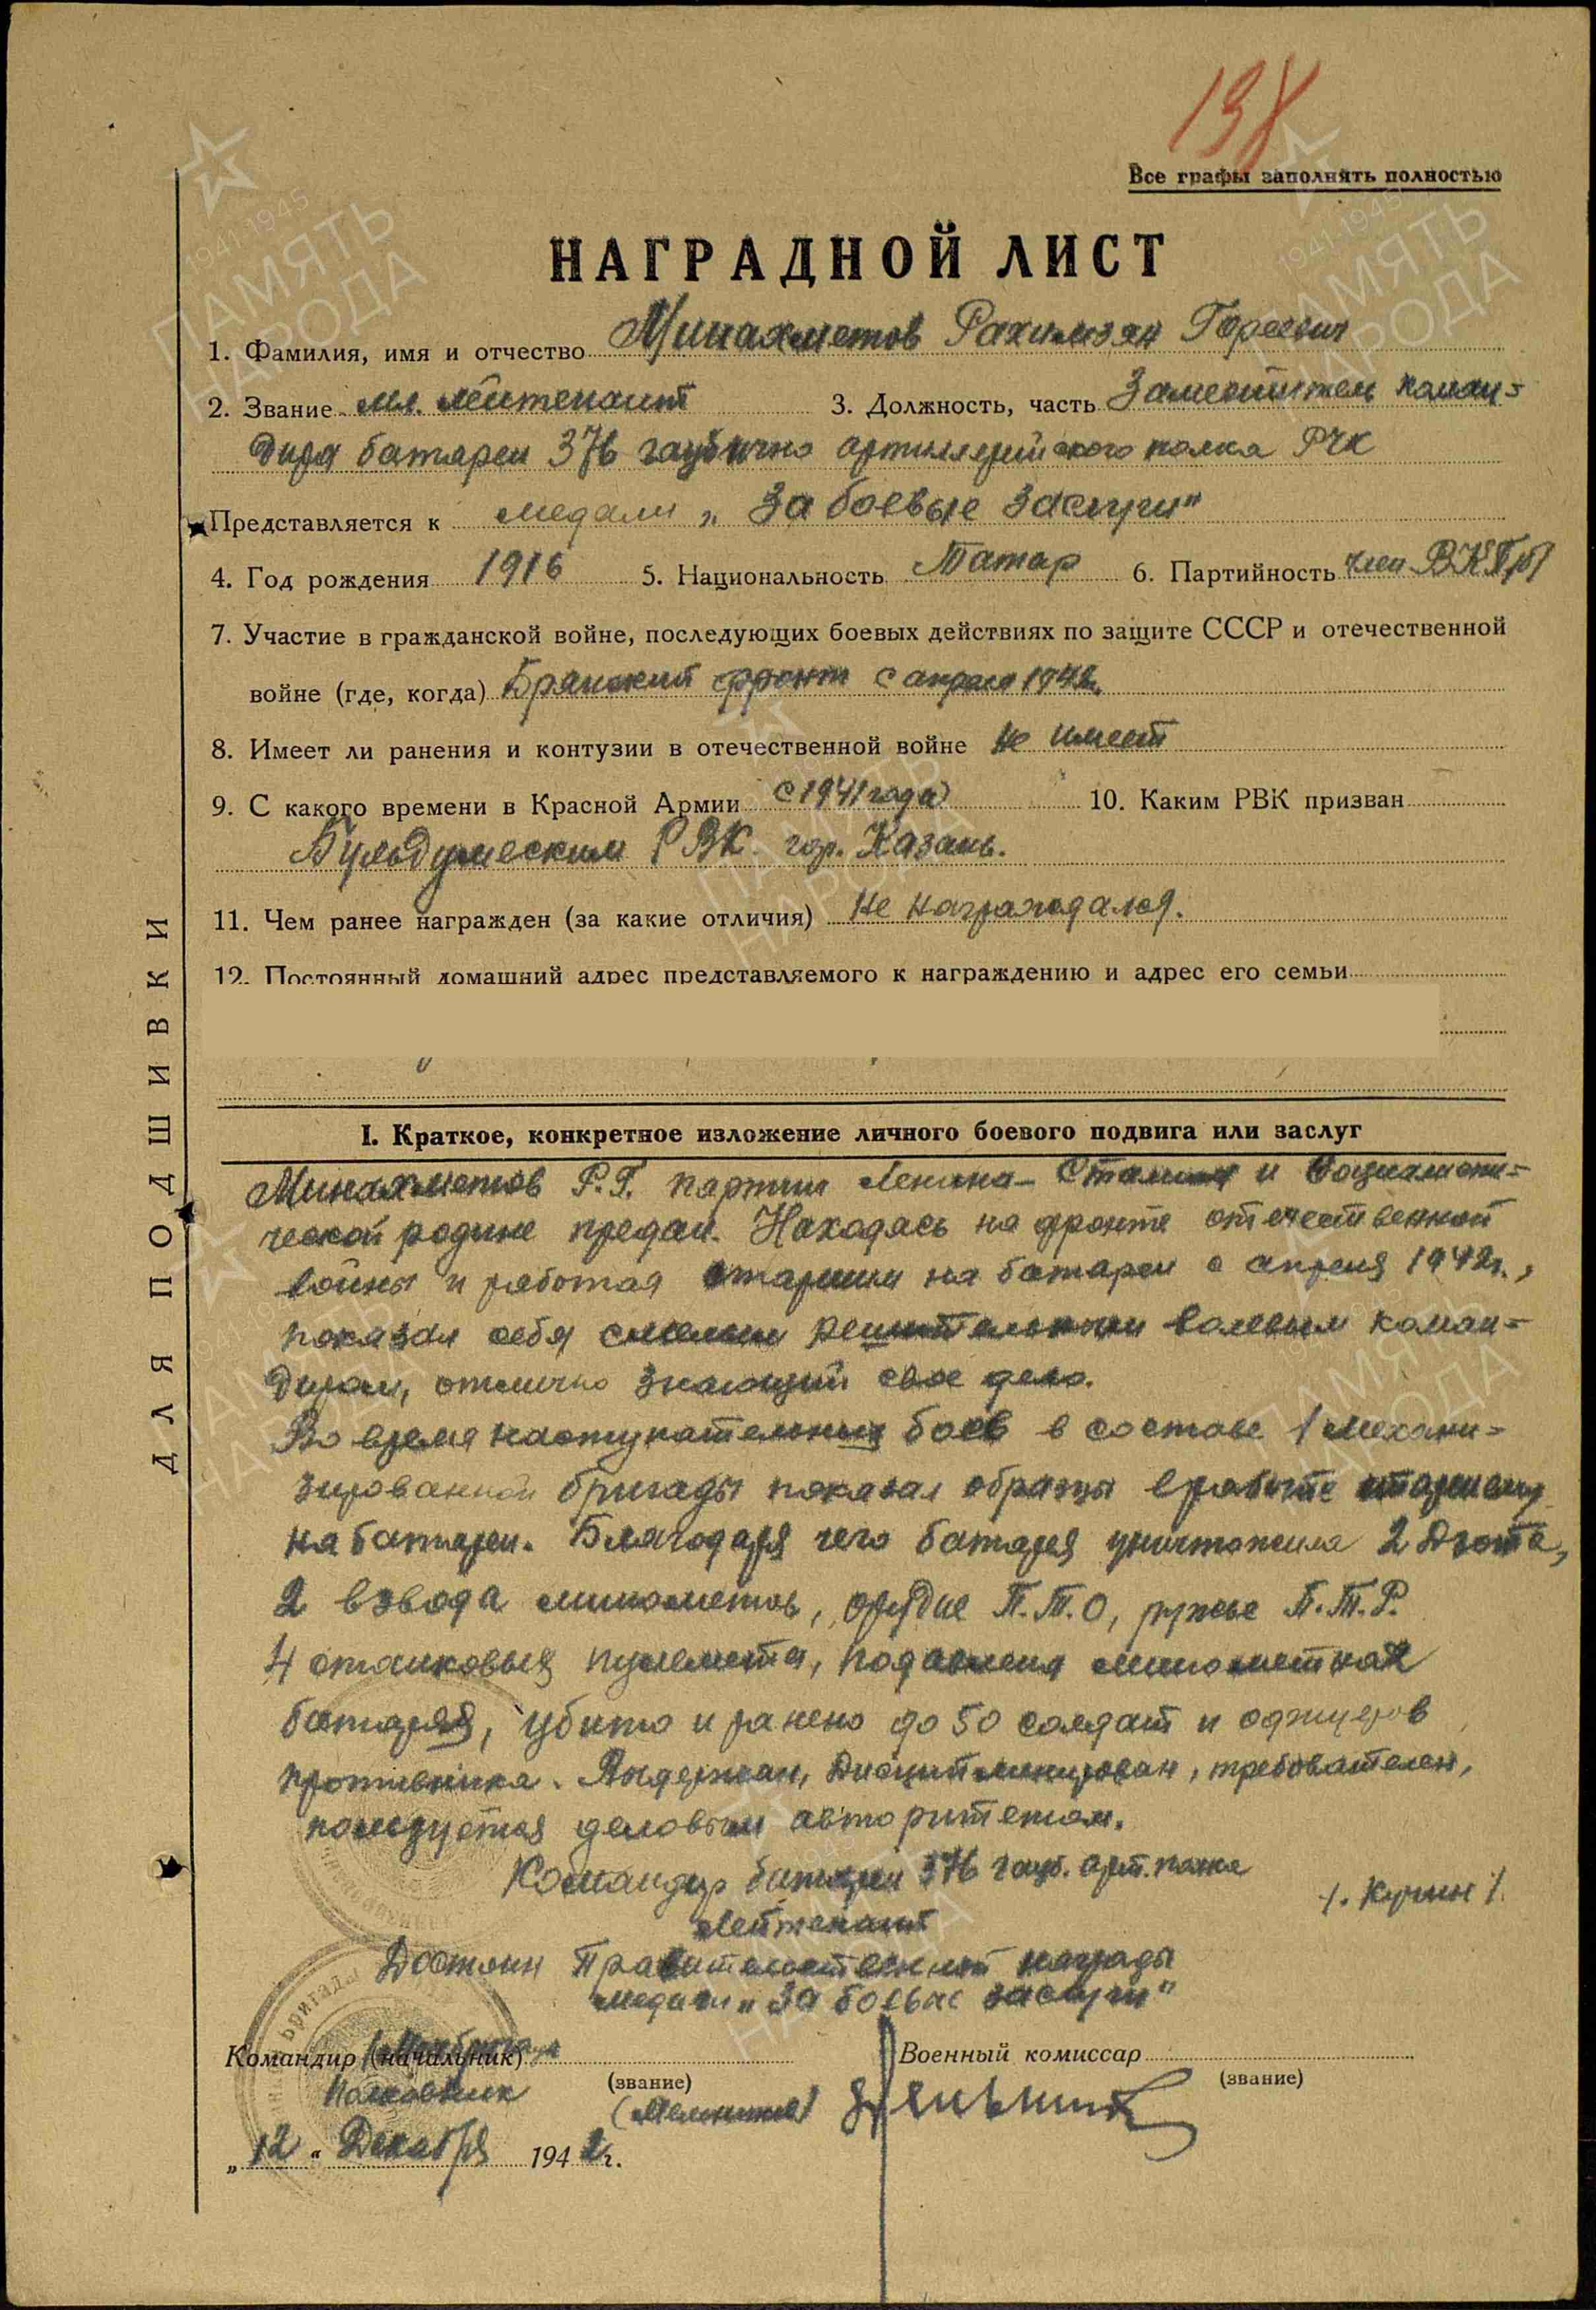 198
Все графы заполнять полностью
НАГРАДНОЙ ЛИСТ
1. Фамилия, имя и отчество Минахметов Рахимзян Гареевич
2. Звание мл. лейтенант 3. Должность, часть Заместитель коман=
дира батареи 376 гаубично артиллерийского полка РГК
Представляется к медали „За боевые заслуги"
4. Год рождения 1916 5. Национальность Татар 6. Партийность член ВКП/б/
7. Участие в гражданской войне, последующих боевых действиях по защите СССР и отечественной
войне (где, когда) Брянский фронт с апреля 1942г.
8. Имеет ли ранения и контузии в отечественной войне Не имеет
9. С какого времени в Красной Армии с 1941 года 10. Каким РВК призван
РВК гор. Казань.
11. Чем ранее награжден (за какие отличия) Не награждался.
12. Постоянный домашний адрес представляемого к награждению и адрес его семьи
ДЛЯ ПОДШИВКИ
I. Краткое, конкретное изложение личного боевого подвига или заслуг
Минахметов Р.Г. партии Ленина-Сталина и Социалисти=
ческой родине предан. Находясь на фронте отечественной
войны и работая старшим на батареи с апреля 1942г.,
показал себя смелым решительным волевым коман=
диром, отлично знающий свое дело.
Во время наступательных боев в составе 1 механи=
зированной бригады показал образцы в работе старшему
на батареи. Благодаря чего батарея уничтожила 2 Дзота,
2 взвода минометов, орудие П.Т.О, ружье П.Т.Р.
4 станковых пулемета, подавлена минометная
батарея, убито и ранено до 50 солдат и офицеров
противника. Выдержан, Дисциплинирован, требователен,
пользуется деловым авторитетом.
Командир батареи 376 гауб. арт. полка
Лейтенант /. Кучин /.
Достоин Правительственной награды
медали „За боевые заслуги"
Командир (начальник) 1 Мехбригады Военный комиссар
Полковник (звание) (звание)
„12" Декабря 1942г.
ПАМЯТЬ НАРОДА
1941-1945